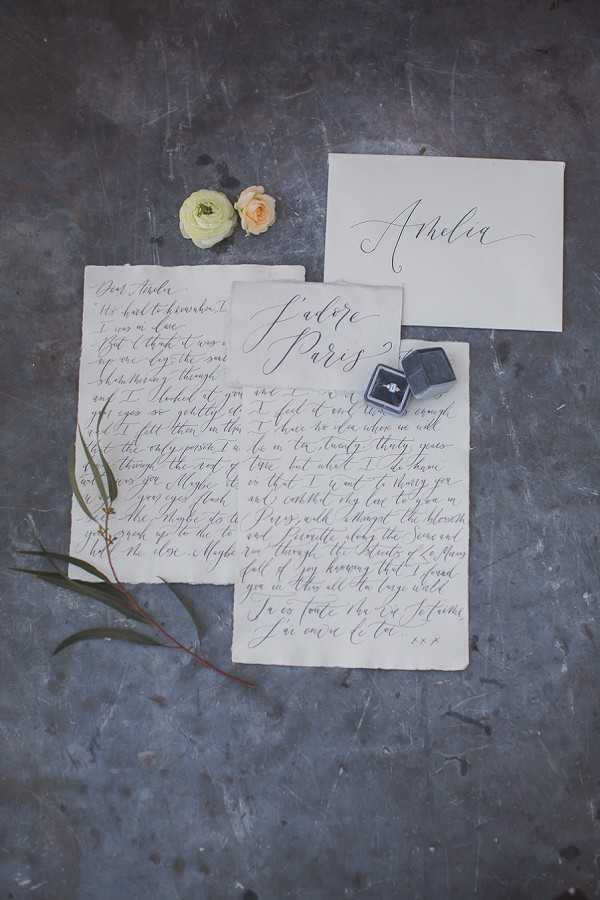 Amelia
J'adore
Paris
Dear Amelia
I was in love
But I think it was
up one day the sun
shimmering through
and I looked at you
your eyes so gently
and I felt then
the only person I
through the rest of
was you Maybe
your eyes flash
the Maybe its
you sneak up to me to
hold me close Maybe
and I
I feel it and enough
I have no idea where we will
be in ten, twenty thirty years
time but what I do know
is that I want to marry you
and cement my love to you in
Paris, walk amongst the blossom
and Pirouette along the Seine and
run through the Streets of Le Marais
full of joy knowing that I found
you in this all too large world
Tu es toute ma vie Je t'aime
J'ai envie de toi... xxx